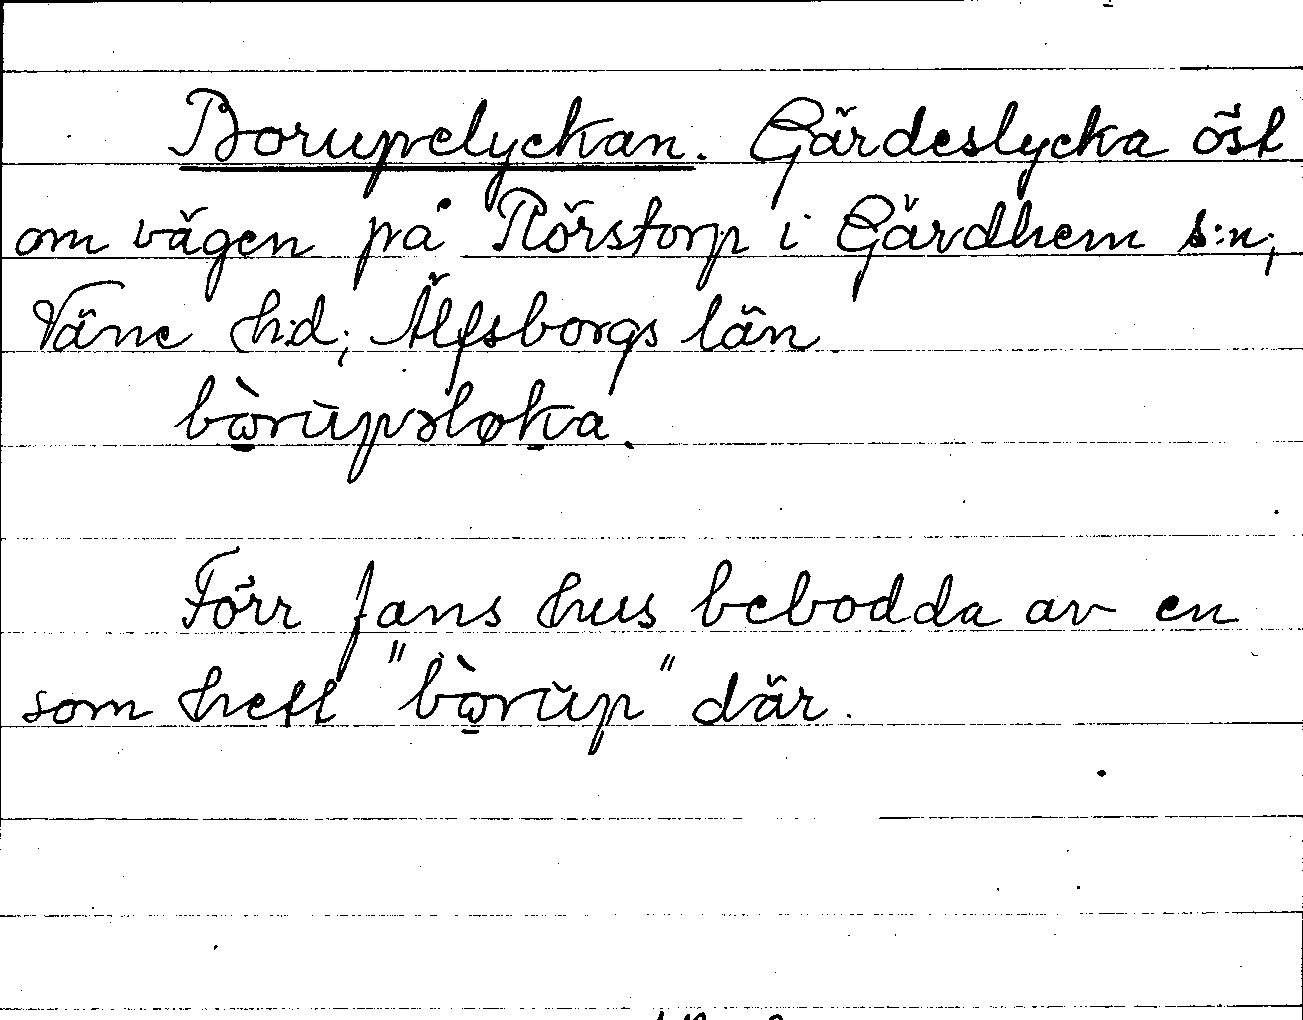 Borupelyckan. Gärdeslycka öst
om vägen på Rörstorp i Gärdhem s:n;
Väne h:d; Älfsborgs län
bὼ̱rūpəløḵa.
Förr fans hus bebodda av en
som hett "bὼ̱rūp" där.